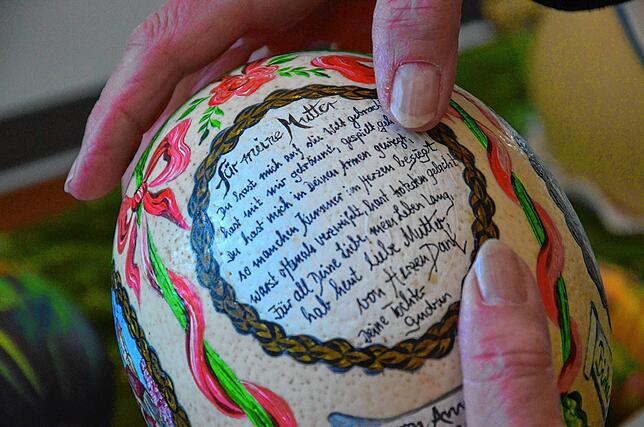 Für meine Mutter
Du hast mich auf die Welt gebracht
hast mit mir geträumt, gespielt
Du hast mich in deinen Armen gewiegt
so manchen Kummer im Herzen besiegt
warst oftmals verzweifelt, hast trotzdem gelacht
Für all Deine Liebe, mein Leben lang,
hab heut liebe Mutter
von Herzen Dank
Deine Tochter
Gudrun